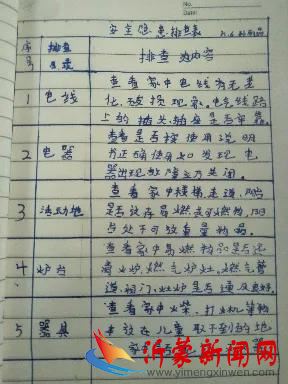 No.
Date
安全隐患排查表
序号 排查目录 排查内容
1 电线 查看家中电线有无老
化、破损现象。电线路
上的插头插座是否牢靠。
2 电器 查看是否按使用说明
书正确使用
发现电
器出现故障立马关闭
3 活动地 查看家中楼梯、走道、阳台
是否放存易燃
可燃物,阳
台处于可放重量物品。
4 炉台 查看家中易燃物是否远
离火炉、燃气炉灶。燃气管
道、阀门、炉灶是否通风良好。
5 器具 查看家中火柴、打火机等物
放在儿童取不到的地
沂蒙新闻网
www.yimengxinwen.com